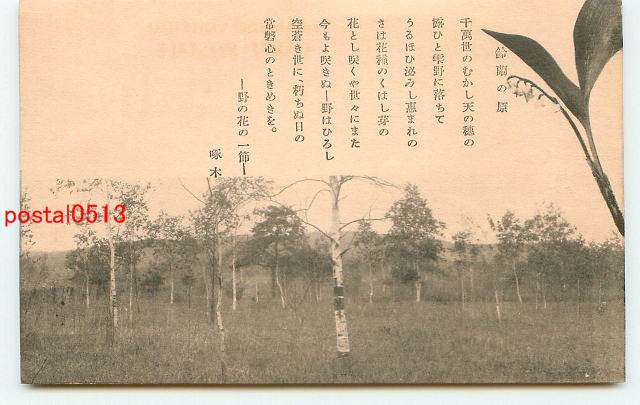 鈴蘭の原
千萬世のむかし天の穗の
露ひと雫野に落ちて
うるほひ泌みし惠まれの
さは花種のくはし芽の
花とし咲くや世々にまた
今もよ咲きぬ―野はひろし
空蒼き世に、朽ちぬ日の
常磐心のときめきを。
―野の花の一節―
啄木
postal0513